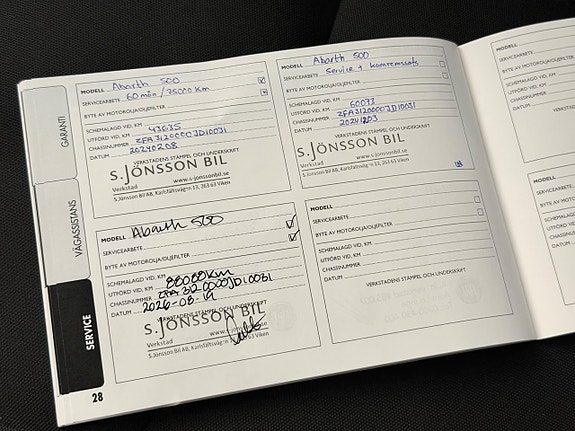 GARANTI
VÄGASSISTANS
SERVICE
MODELL Abarth 500
SERVICEARBETE 60 mån / 75000 Km
BYTE AV MOTOROLJA/OLJEFILTER
SCHEMALAGD VID, KM
UTFÖRD VID, KM 43635
CHASSINUMMER ZFA3120000JD10031
DATUM 20240208
VERKSTADENS STÄMPEL OCH UNDERSKRIFT
S.JÖNSSON BIL
Verkstad www.s-jonssonbil.se
S.Jönsson Bil AB, Karlsfältsvägen 13, 263 63 Viken
MODELL Abarth 500
SERVICEARBETE Service + kamremssats
BYTE AV MOTOROLJA/OLJEFILTER
SCHEMALAGD VID, KM
UTFÖRD VID, KM 60073
CHASSINUMMER ZFA3120000JD10031
DATUM 20241203
VERKSTADENS STÄMPEL OCH UNDERSKRIFT
S.JÖNSSON BIL
Verkstad www.s-jonssonbil.se
S.Jönsson Bil AB, Karlsfältsvägen 13, 263 63 Viken
MODELL Abarth 500
SERVICEARBETE
BYTE AV MOTOROLJA/OLJEFILTER
SCHEMALAGD VID, KM
UTFÖRD VID, KM 80080Km
CHASSINUMMER ZFA3120000JD10031
DATUM 2026-08-19
VERKSTADENS STÄMPEL OCH UNDERSKRIFT
S.JÖNSSON BIL
Verkstad
S.Jönsson Bil AB, Karlsfältsvägen 13, 263 63 Viken
MODELL
SERVICEARBETE
BYTE AV MOTOROLJA/OLJEFILTER
SCHEMALAGD VID, KM
UTFÖRD VID, KM
CHASSINUMMER
DATUM
VERKSTADENS STÄMPEL OCH UNDERSKRIFT
28
MODELL
SERVICEARBETE
BYTE AV
SCHEMALAGD
UTFÖRD VID,
CHASSINUMMER
DATUM
MODELL
SERVICEARBETE
BYTE AV